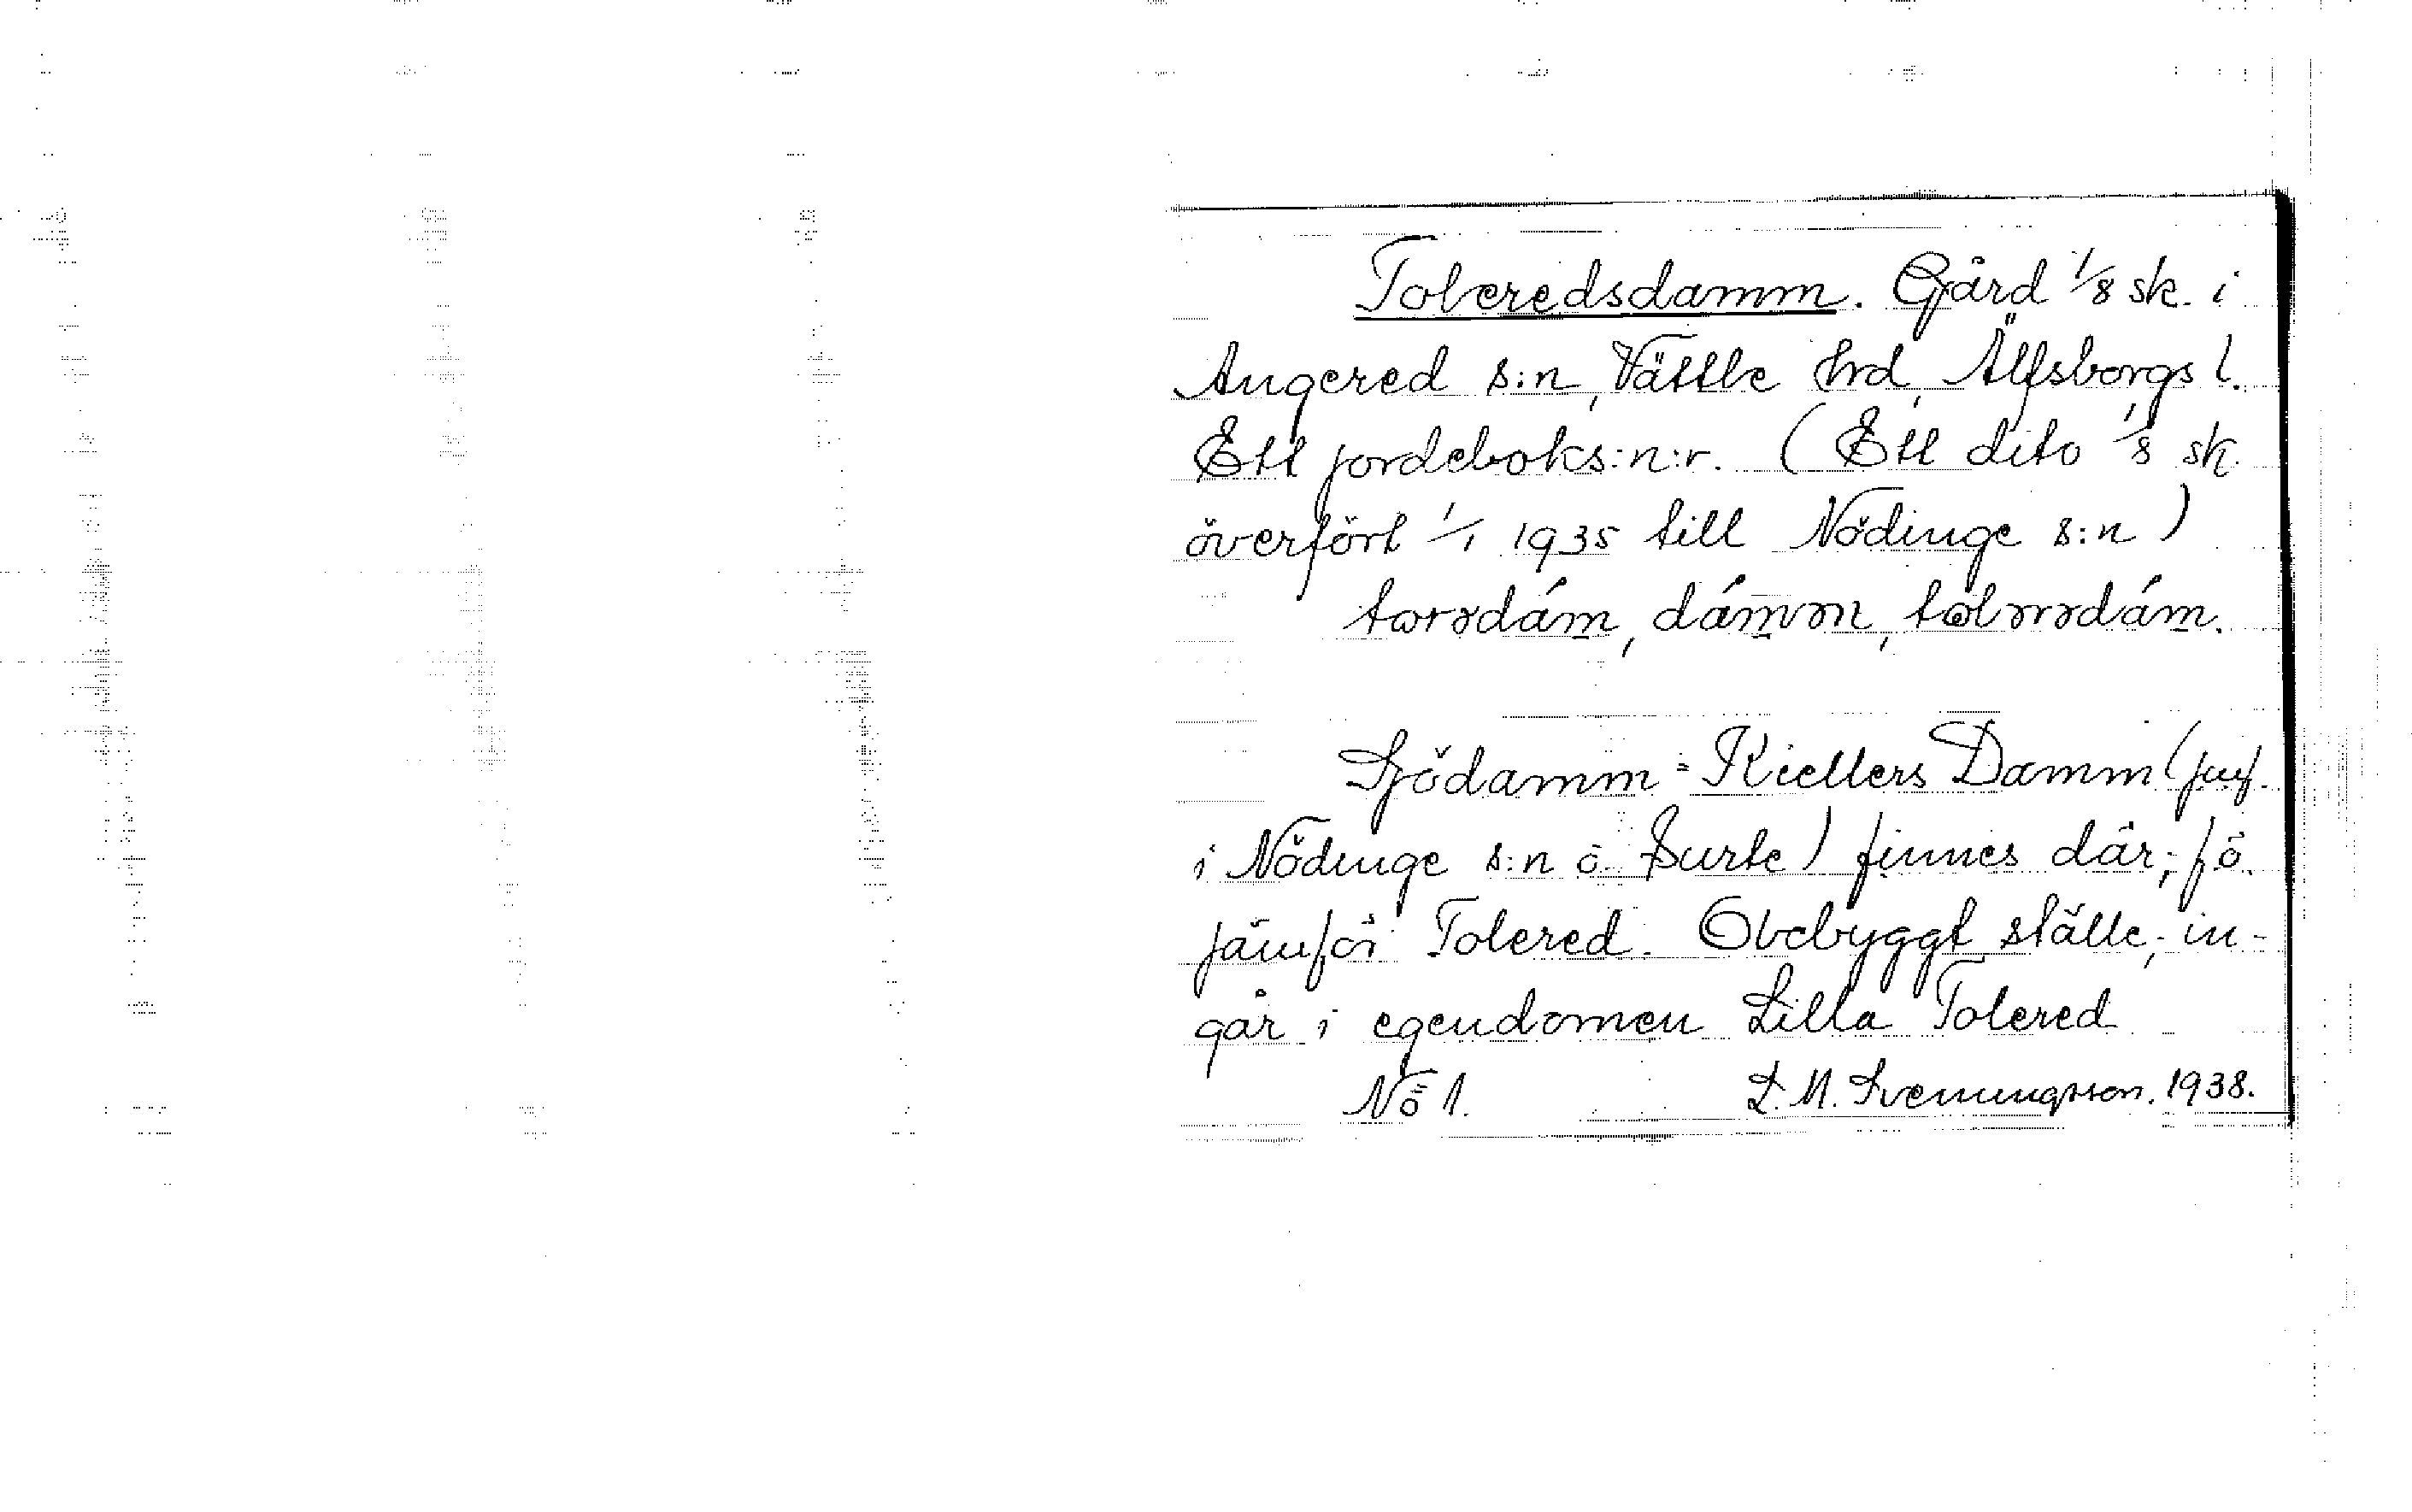 Toleredsdamm. Gård 1/8 sk. i
Angered s:n, Vättle hrd, Älfsborgs l.
Ett jordeboks:n:r. (Ett dito 1/8 sk
överfört 1/1 1935 till Nödinge s:n)
dámən
Sjödamm = Kiellers Damm (jmf.
i Nödinge s:n o. Surte) finnes där; fö.
jämför Tolered. Obebyggt ställe; in-
går i egendomen Lilla Tolered
No 1. L. M. Svenungsson. 1938.